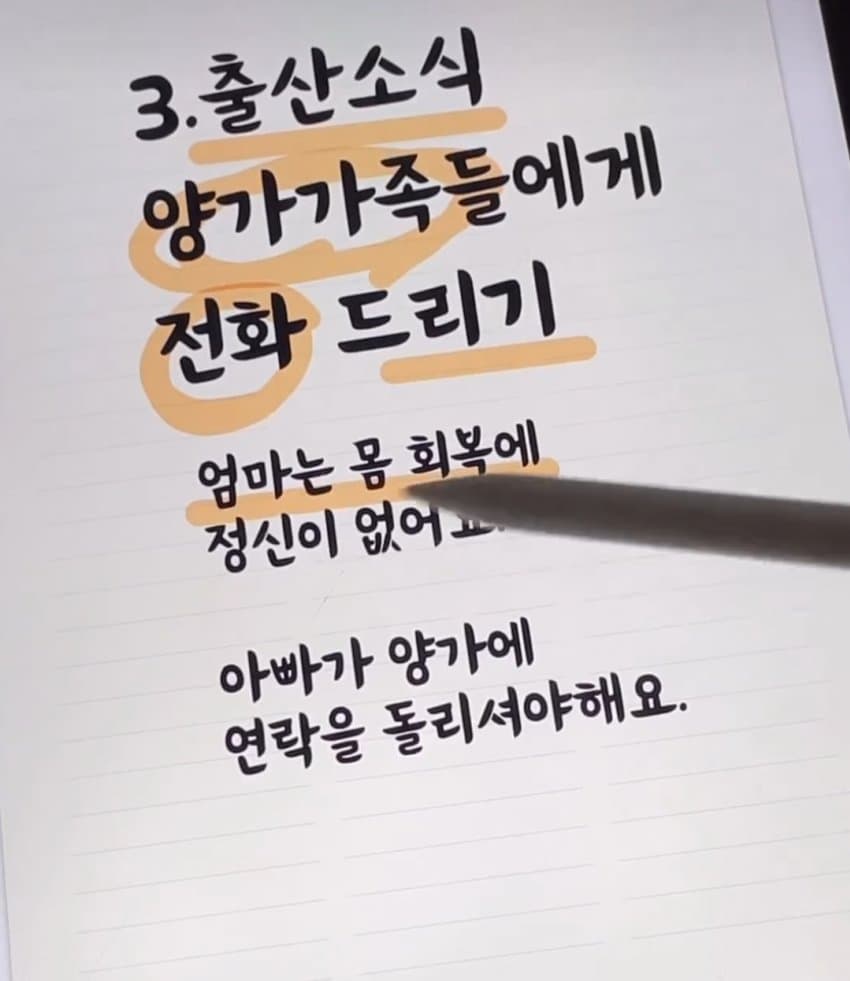 3.출산소식
양가가족들에게
전화 드리기
엄마는 몸 회복에
정신이 없어요.
아빠가 양가에
연락을 돌리셔야해요.